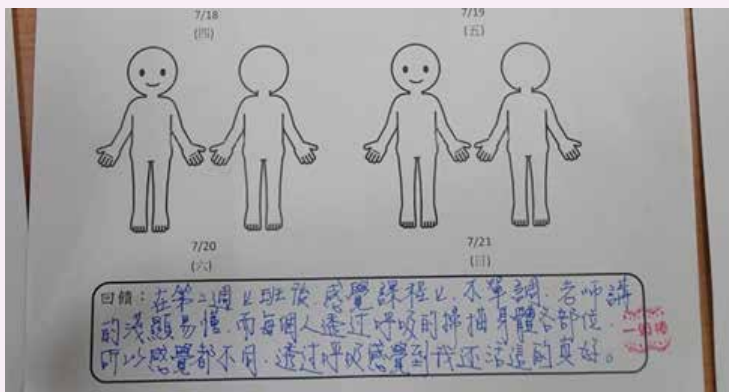 7/18
(四)
7/19
(五)
7/20
(六)
7/21
(日)
回饋：在第二週上班後,感覺課程上.不單調.老師講
的淺顯易懂.而每個人透过呼吸的掃描身體各部位.
所以感覺都不同.透过呼吸感覺到我还活這的真好。